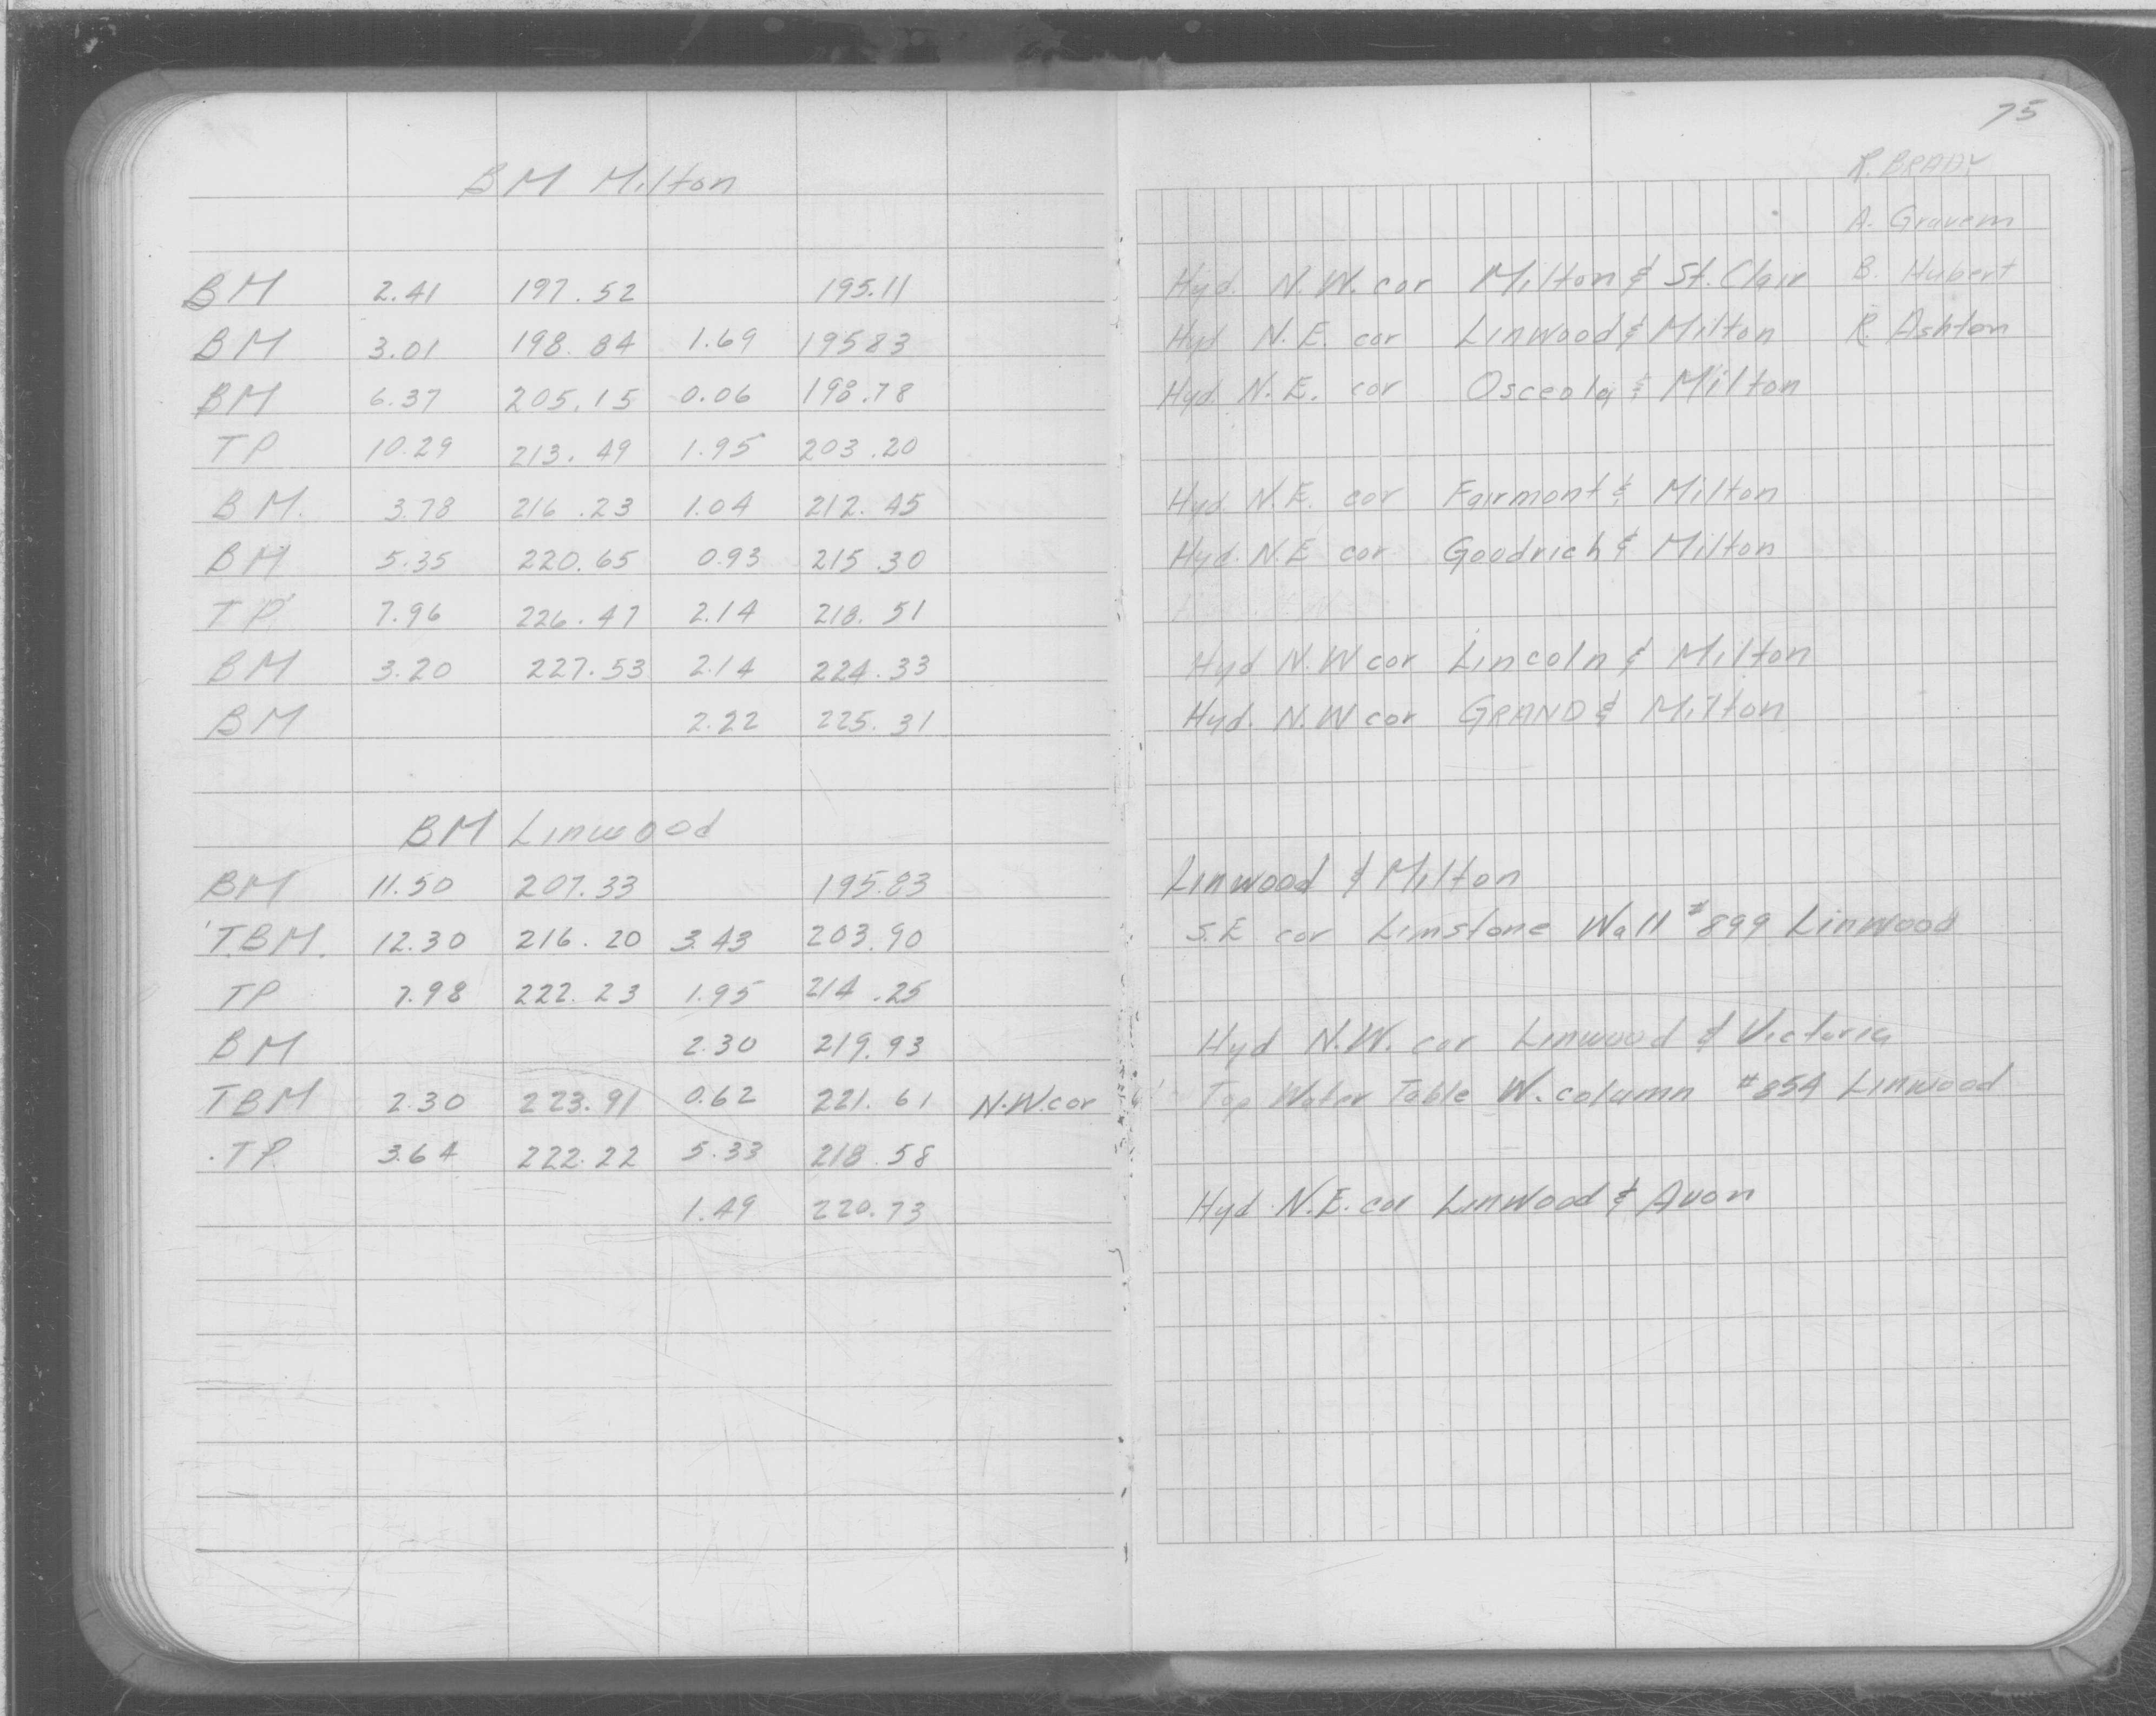 75
BM Milton
R. BRADY
A. Gravem
BM 2.41 197.52 195.11 Hyd. N.W. cor Milton & St. Clair B. Hubert
BM 3.01 198.84 1.69 195 83 Hyd N.E. cor Linwood & Milton R. Ashton
BM 6.37 205.15 0.06 198.78 Hyd N.E. cor Osceola & Milton
TP 10.29 213.49 1.95 203.20
BM. 3.78 216.23 1.04 212.45 Hyd. N.E. cor Fairmont & Milton
BM 5.35 220.65 0.93 215.30 Hyd. N.E cor Goodrich & Milton
TP 7.96 226.47 2.14 218.51
BM 3.20 227.53 2.14 224.33 Hyd N.W cor Lincoln & Milton
BM 2.22 225.31 Hyd. N.W cor GRAND & Milton
BM Linwood
BM 11.50 207.33 195.83 Linwood & Milton
TBM. 12.30 216.20 3.43 203.90 S.E cor Limstone Wall #899 Linwood
TP 7.98 222.23 1.95 214.25
BM 2.30 219.93 Hyd N.W. cor Linwood & Victoria
TBM 2.30 223.91 0.62 221.61 N.W. cor Top Water Table W. column #854 Linwood
TP 3.64 222.22 5.33 218.58
1.49 220.73 Hyd N.E. cor Linwood & Avon